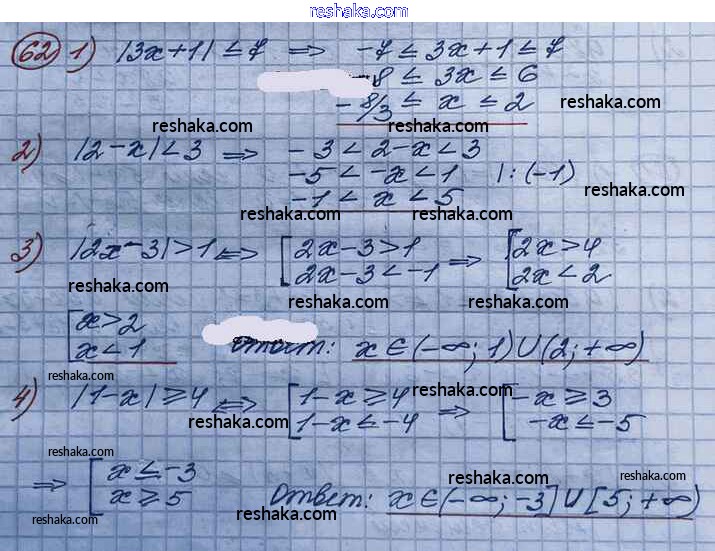 reshaka.com
62 1) |3x+1| ≤ 7 ⇒ -7 ≤ 3x+1 ≤ 7
8 ≤ 3x ≤ 6
-8/3 ≤ x ≤ 2 reshaka.com
reshaka.com reshaka.com
2) |2-x| < 3 ⇒ -3 < 2-x < 3
-5 < -x < 1 | : (-1)
reshaka.com
-1 < x < 5
reshaka.com reshaka.com
3) |2x-3| > 1 ⇔ [ 2x-3 > 1 ⇒ [ 2x > 4
2x-3 < -1 2x < 2
reshaka.com
reshaka.com reshaka.com
[ x > 2
x < 1 Ответ: x ∈ (-∞; 1) ∪ (2; +∞)
reshaka.com reshaka.com
reshaka.com
4) |1-x| ≥ 4 ⇔ [ 1-x ≥ 4 ⇒ [ -x ≥ 3
1-x ≤ -4 -x ≤ -5
reshaka.com
reshaka.com
reshaka.com
⇒ [ x ≤ -3
x ≥ 5 Ответ: x ∈ (-∞; -3] ∪ [5; +∞)
reshaka.com reshaka.com
reshaka.com reshaka.com